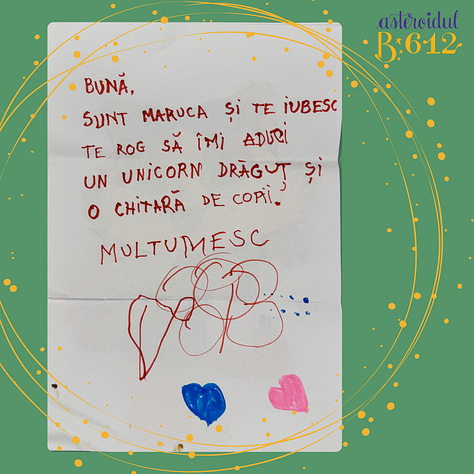 asteroidul
B:612
BUNĂ,
SUNT MARUCA ȘI TE IUBESC
TE ROG SĂ ÎMI ADUCI
UN UNICORN DRĂGUȚ ȘI
O CHITARĂ DE COPII.
MULTUMESC